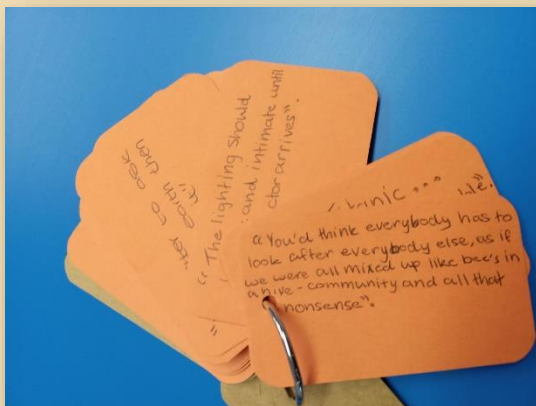 "You'd think everybody has to
look after everybody else, as if
we were all mixed up like bee's in
a hive - community and all that
nonsense".
"The lighting should
and intimate until
ctor arrives".
to ask
earth then
it"
inic ...